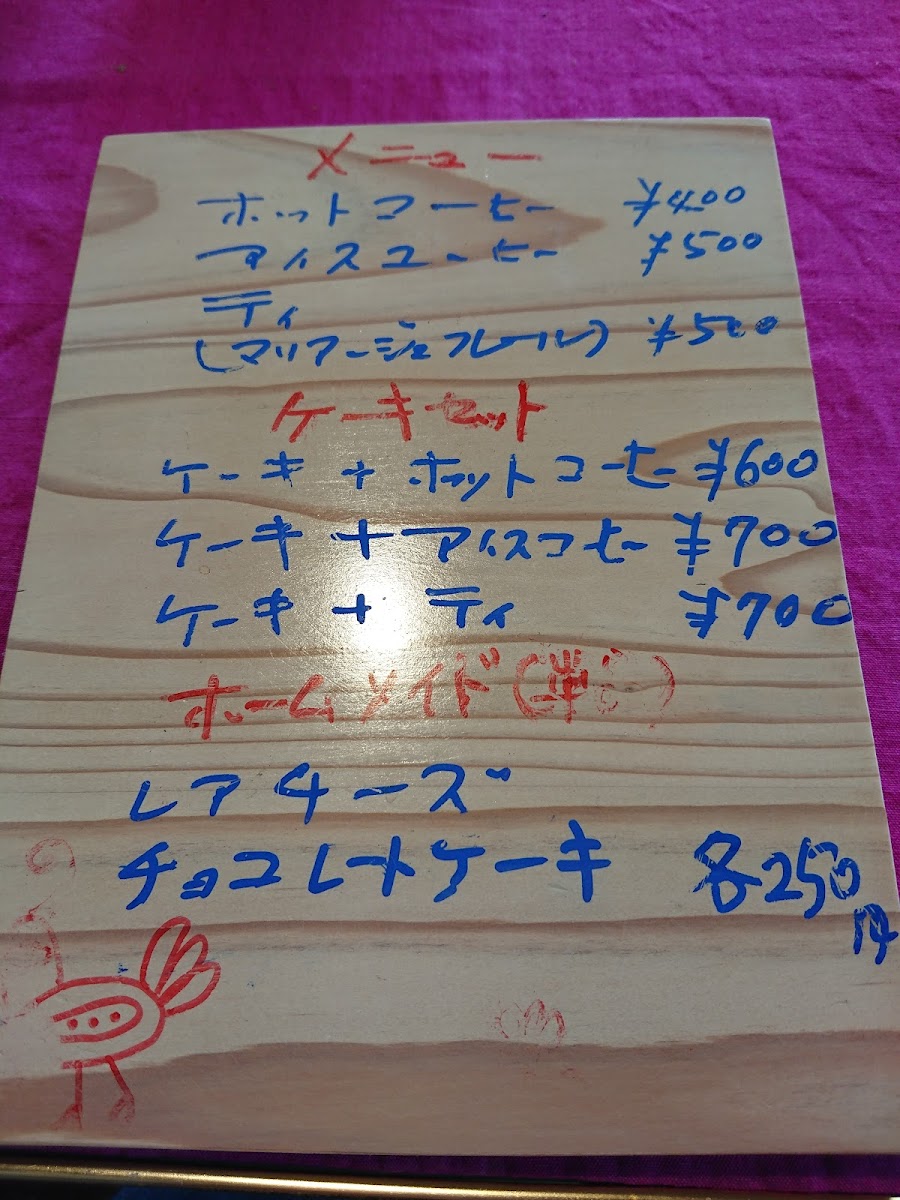 メニュー
ホットコーヒー ¥400
アイスコーヒー ¥500
ティ
(マリアージュフレール) ¥500
ケーキセット
ケーキ + ホットコーヒー ¥600
ケーキ + アイスコヒー ¥700
ケーキ + ティ ¥700
ホームメイド(単
レアチーズ
チョコレートケーキ 各250
円